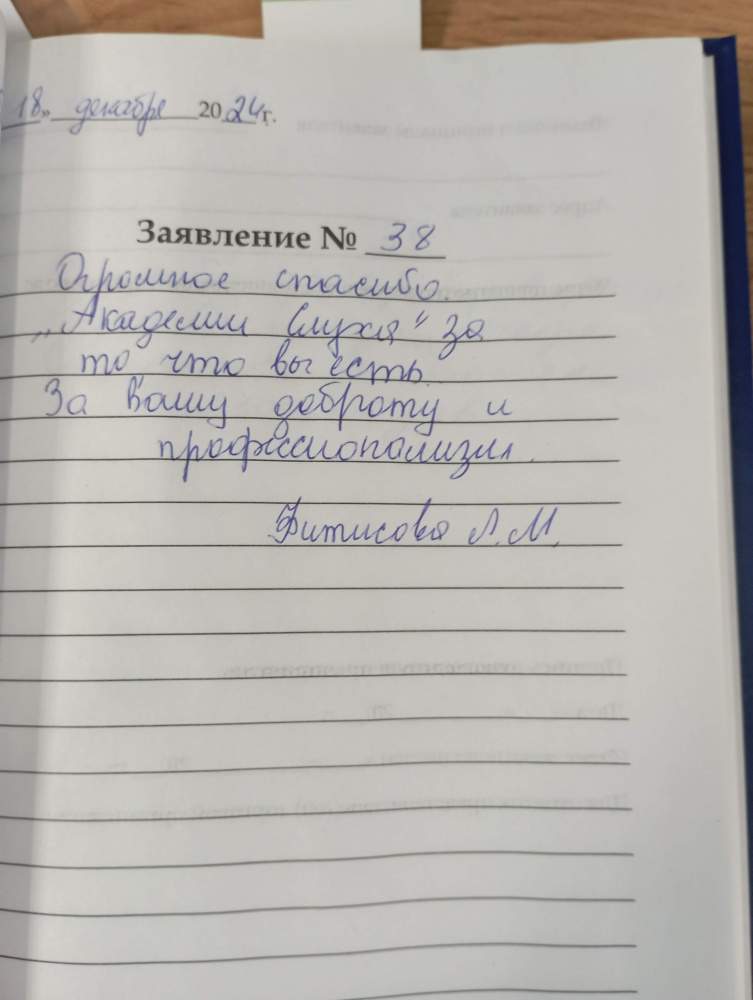 18» декабря 2024г.
Заявление № 38
Огромное спасибо
„Академии Слуха" за
то, что вы есть.
За Вашу доброту и
профессионализм.
Фитисова Л.М.